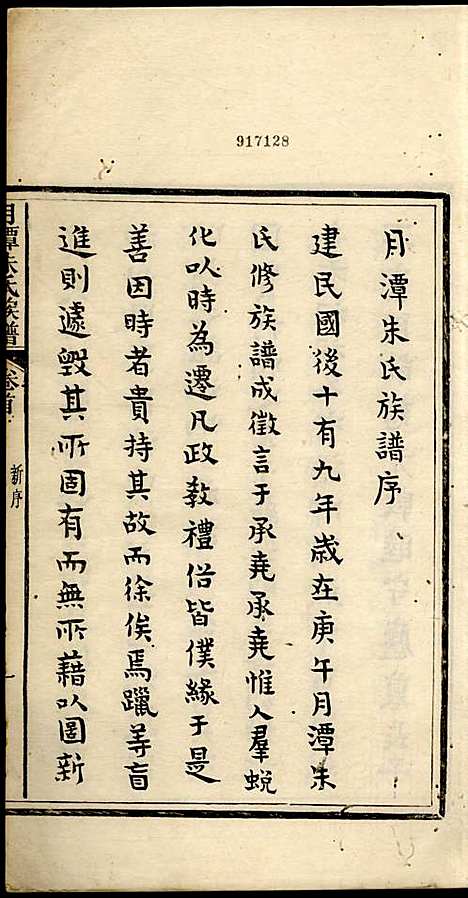 917128
月潭朱氏族譜序
建民國後十有九年歲在庚午月潭朱
氏修族譜成徵言于承堯承堯惟人羣蛻
化以時為遷凡政敎禮俗皆僕緣于是
善因時者貴持其故而徐俟焉躐等盲
進則遽毀其所固有而無所藉以圖新
月潭朱氏族譜
卷首
新序
一